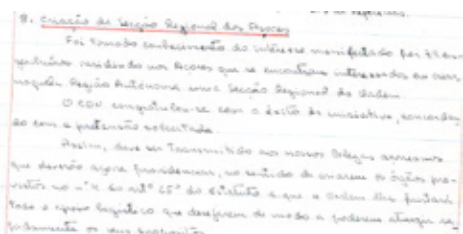 8. Criação da Secção Regional dos Açores
Foi tomado conhecimento do interesse manifestado por
residindo nos Açores que se encontram interessados em criar
naquela Região Autónoma uma Secção Regional da Ordem
O CDN congratulou-se com o desta iniciativa, concordan
do com a pretensão solicitada.
Assim, deve ser transmitido aos nossos Colegas açoreanos
que deverão agora providenciar, no sentido de criarem os órgãos pre-
vistos no nº do artº do Estatuto e que a Ordem lhes
todo o apoio logístico que desejarem de modo a poderem atingir ra-
pidamente os seus propósitos